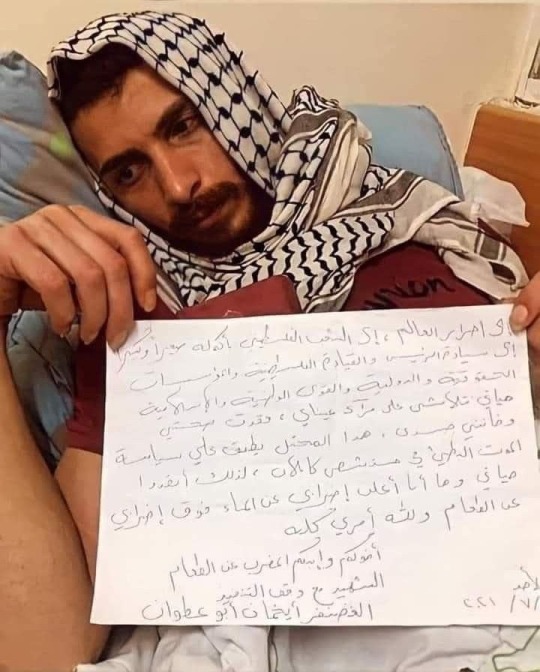 yvon
إلى أحرار العالم، إلى الشعب الفلسطيني بأكمله
إلى سيادة الرئيس والقيادة الفلسطينية والمؤسسات
الحقوقية والدولية والقوى الوطنية والإسلامية
حياتي تتلاشى على مرآى عيناي، فقدت صحتي
وخانني جسدي، هذا المحتل يطبق علي سياسة
الموت البطيء في مستشفى كابلان، لذلك أنقذوا
حياتي وها أنا أعلن إضرابي عن الماء فوق إضرابي
عن الطعام ولله أمري كله
أخوكم وابنكم المضرب عن الطعام
الشهيد مع وقف التنفيذ
الغضنفر أيخمان أبو عطوان
الأحد
/٧/ ٢٠٢١